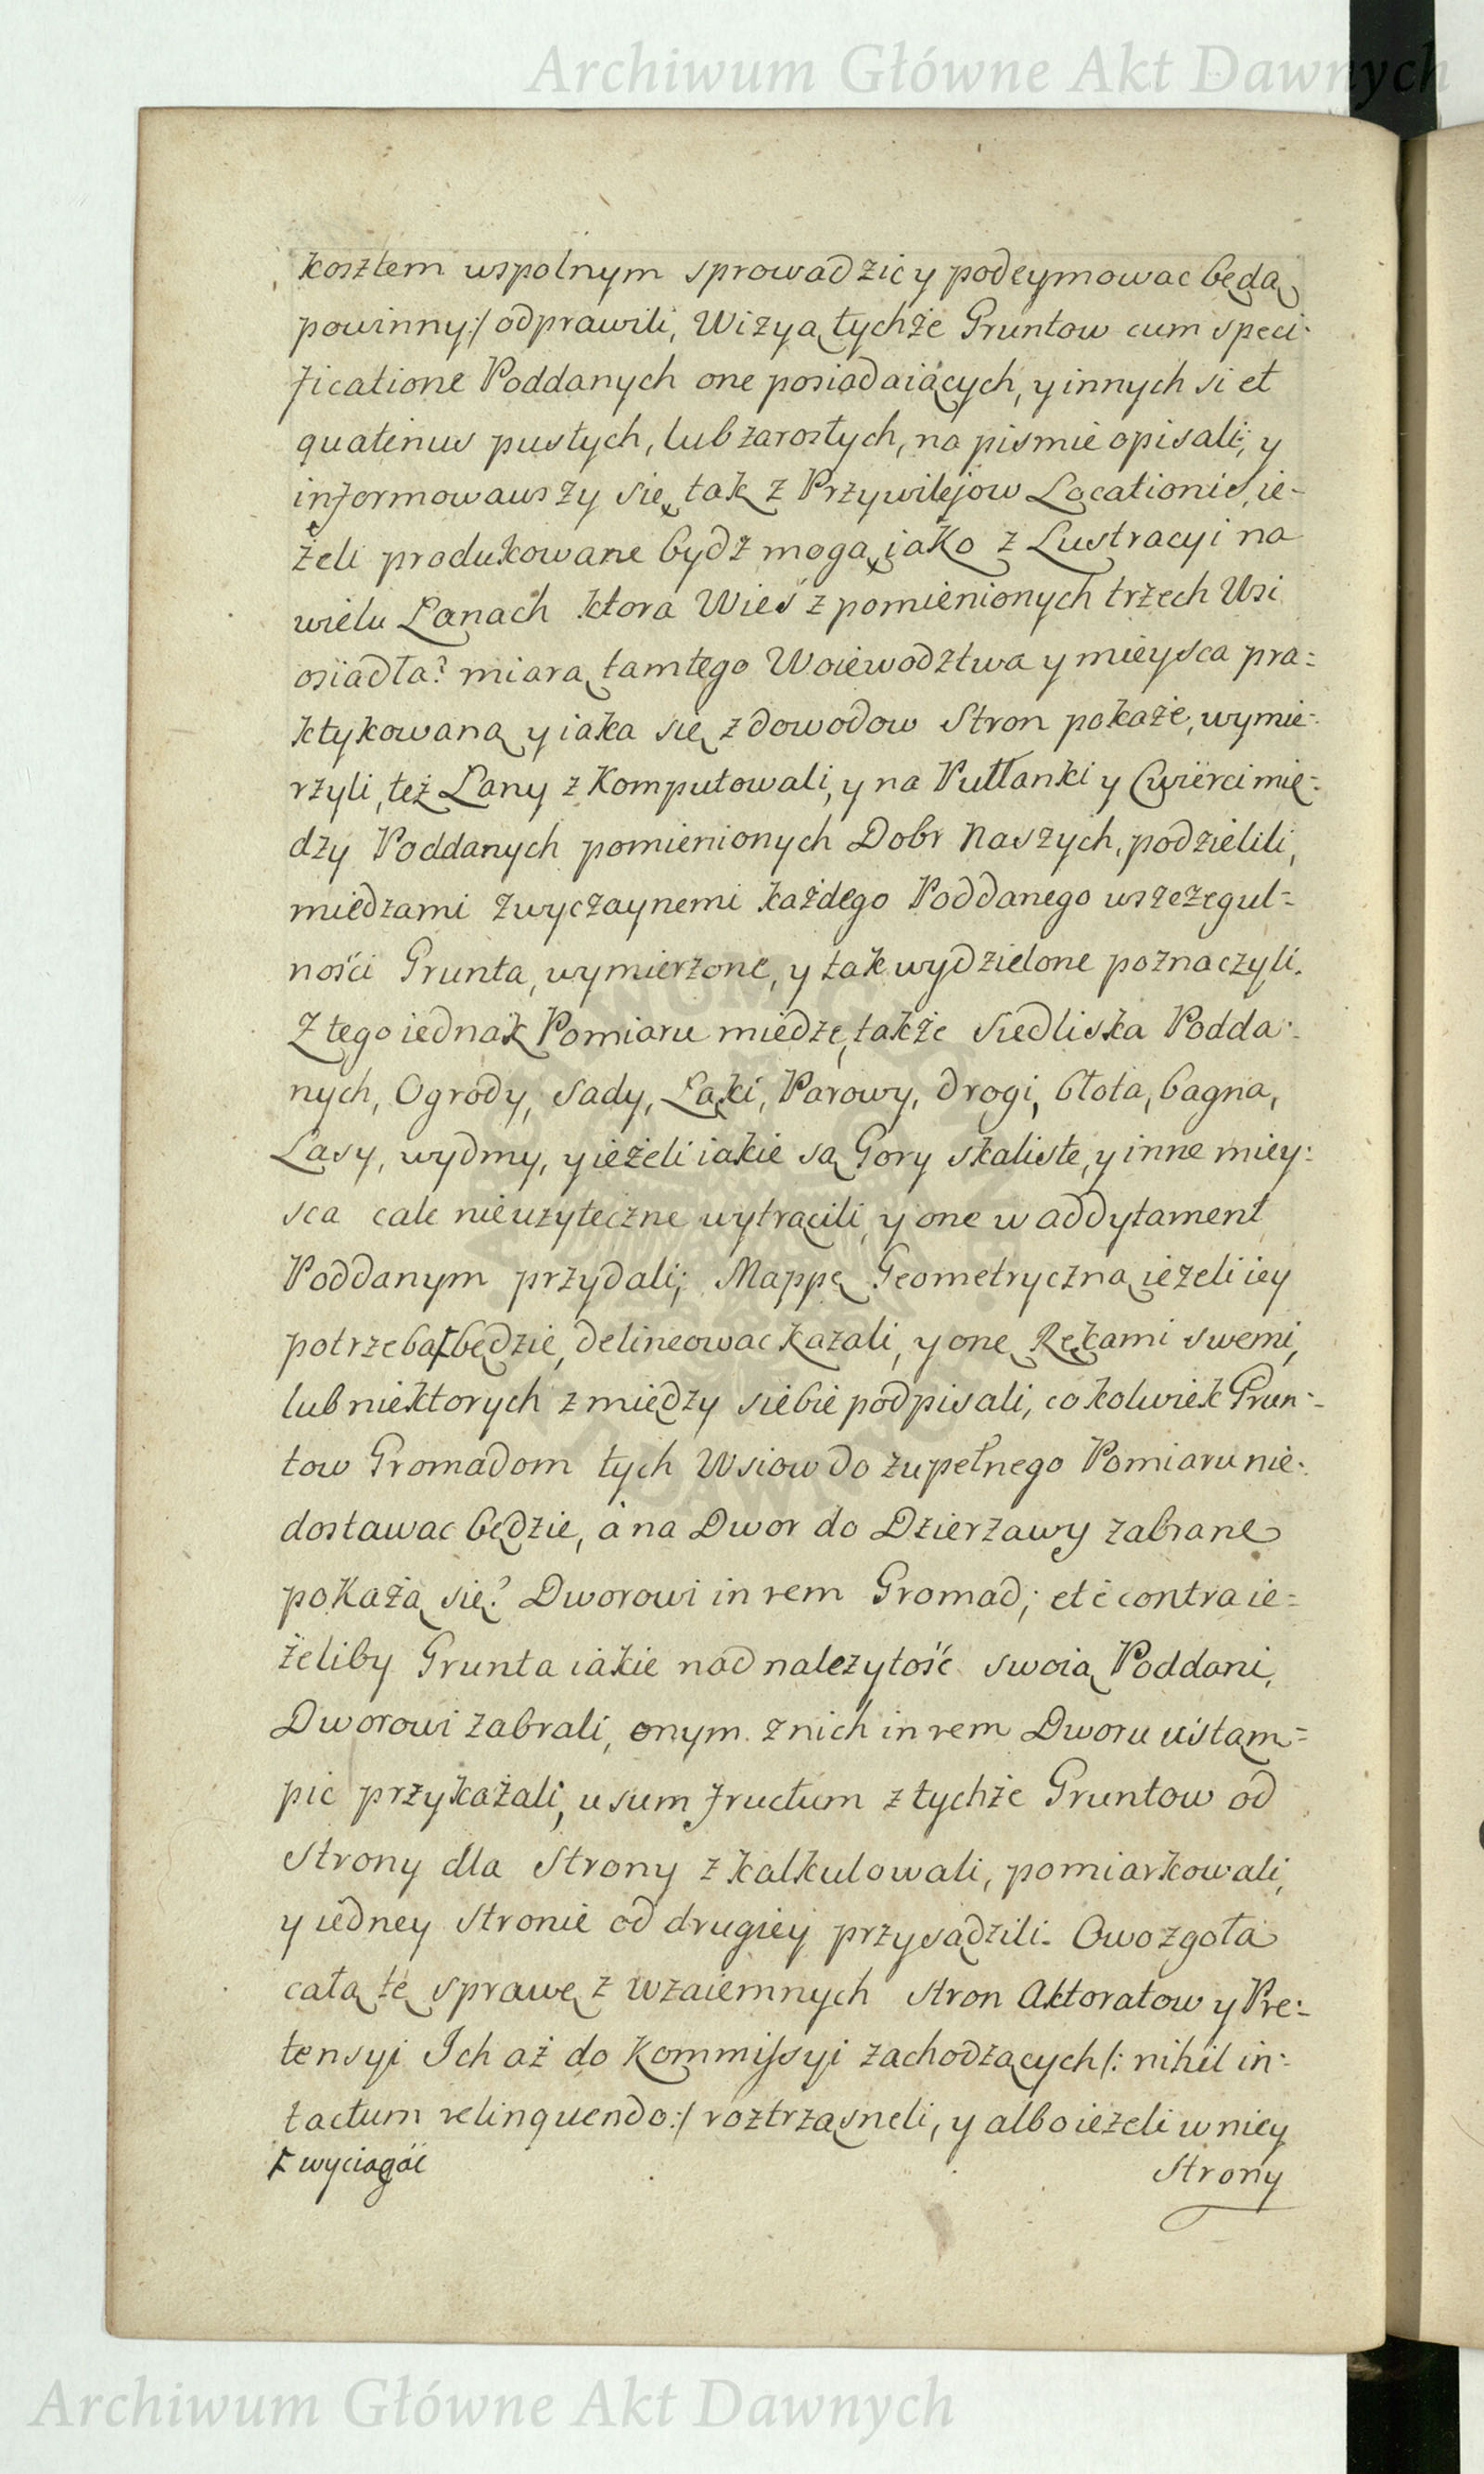 Archiwum Główne Akt Dawnych
kosztem wspolnym sprowadzic y podeymowac będą
powinny:/ odprawili, Wizyą tychże Gruntow cum speci:
ficatione Poddanych one posiadaiących, y innych si et
quatinus pustych, lub zarosłych, na pismie opisali; y
informowawszy się, tak z Przywilejow Locationis, ie-
żeli produkowane bydź mogą, iako z Lustracyi na
wielu Łanach ktora Wieś z pomienionych trzech Wsi
osiadła? miarą tamtego Woiewodztwa y mieysca pra=
ktykowaną y iaka się z dowodow Stron pokaże, wymie:
rzyli, też Łany z Komputowali, y na Pułłanki y Cwierci mię:
dzy Poddanych pomienionych Dobr Naszych, podzielili,
miedzami zwyczaynemi każdego Poddanego wszczegul=
ności Grunta, wymierzone, y tak wydzielone poznaczyli.
Z tego iednak Pomiaru miedze, także Siedliska Podda:
nych, Ogrody, Sady, Łąki, Parowy, drogi, błota, bagna,
Lasy, wydmy, y ieżeli iakie są Gory skaliste, y inne miey:
sca cale nieużyteczne wytrącili, y one w addytament
Poddanym przydali; Mappę Geometryczną ieżeli iey
potrzeba Ɨ będzie, delineowac kazali, y onę Rękami swemi,
lub niektorych z między siebie podpisali, cokolwiek Grun:
tow Gromadom tych Wsiow do zupełnego Pomiaru nie:
dostawac będzie, à na Dwor do Dzierzawy zabrane
pokażą się? Dworowi in rem Gromad; et è contra ie=
żeliby Grunta iakie nad należytość swoią Poddani,
Dworowi zabrali, onym z nich in rem Dworu ustąm=
pic przykażali, usum fructum z tychże Gruntow od
Strony dla Strony z kalkulowali, pomiarkowali,
y iedney Stronie od drugiey przysądzili. Owo zgoła
całą tę sprawę z wzaiemnych Stron Aktoratow y Pre:
tensyi Ich aż do Kommissyi zachodzących /: nihil in:
tactum relinquendo:/ roztrząsneli, y albo ieżeli w niey
Ɨ wyciągać
Strony
Archiwum Główne Akt Dawnych